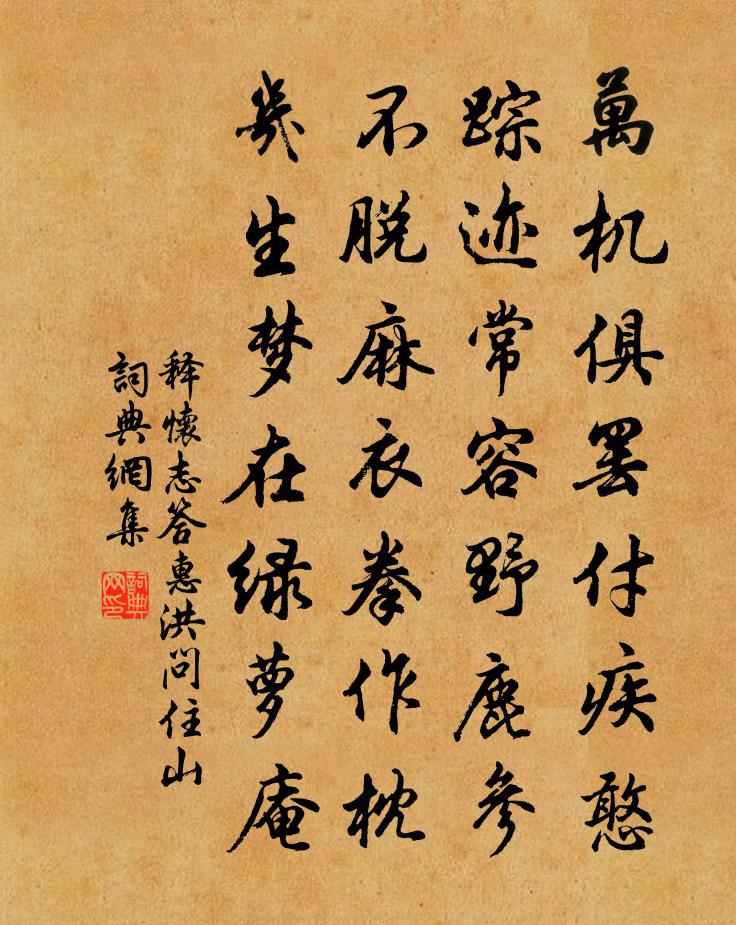 萬机俱罢付疾憨
踪迹常容野鹿参
不脱麻衣拳作枕
幾生梦在绿萝庵
释懷志答惠洪問住山
詞典網集
詞典网印